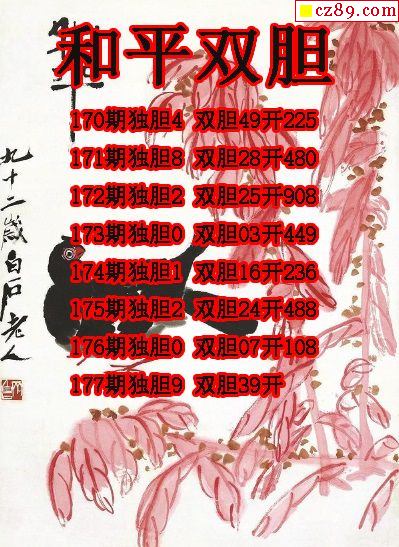 cz89.com
和平双胆
170期独胆4 双胆49开225
171期独胆8 双胆28开480
172期独胆2 双胆25开908
173期独胆0 双胆03开449
174期独胆1 双胆16开236
175期独胆2 双胆24开488
176期独胆0 双胆07开108
177期独胆9 双胆39开
九十二岁白石老人